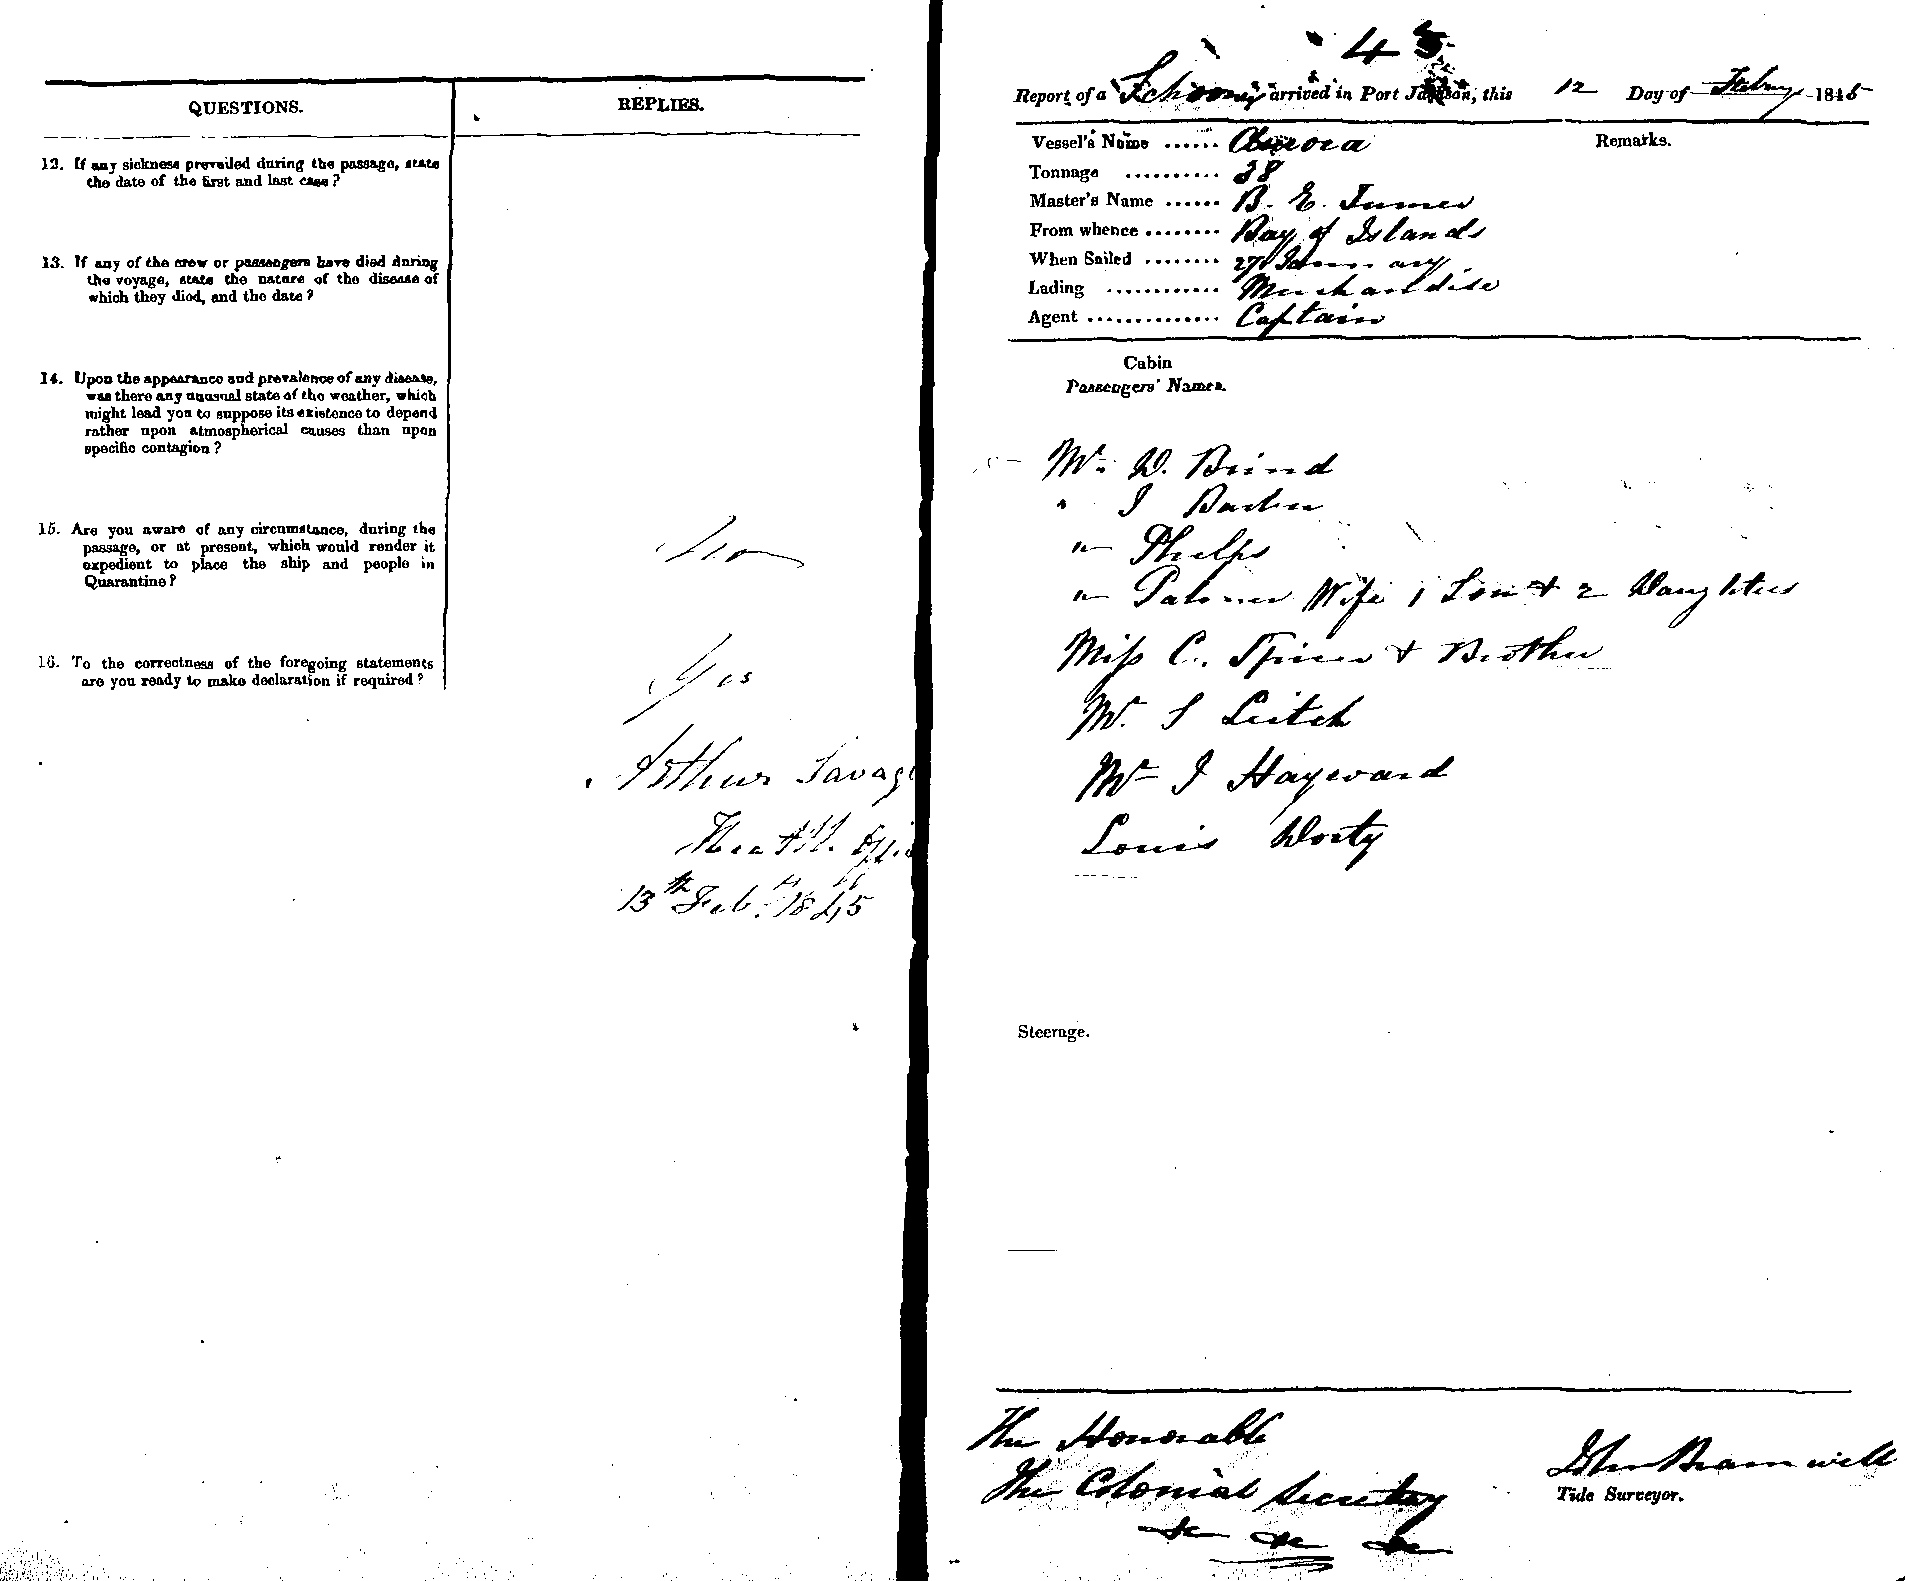 QUESTIONS.
REPLIES.
12. If any sickness prevailed during the passage, state
the date of the first and last case?
13. If any of the crew or passengers have died during
the voyage, state the nature of the disease of
which they died, and the date?
14. Upon the appearance and prevalence of any disease,
was there any unusual state of the weather, which
might lead you to suppose its existence to depend
rather upon atmospherical causes than upon
specific contagion?
15. Are you aware of any circumstance, during the
passage, or at present, which would render it
expedient to place the ship and people in
Quarantine?
No
16. To the correctness of the foregoing statements
are you ready to make declaration if required?
Yes
Arthur Savage
Health Offi
13th Feb. 1845
43
Report of a Schooner arrived in Port Jackson, this 12 Day of Febry 1845
Vessel's Name ...... Aurora
Remarks.
Tonnage .......... 38
Master's Name ...... B. E. Turner
From whence ........ Bay of Islands
When Sailed ........ 27 January
Lading ............ Merchandise
Agent .............. Captain
Cabin
Passengers' Names.
Mr. W. Brind
" J Barber
" Phelps
" Palmer Wife 1 Son & 2 Daughters
Miss C. Spicer & Brother
Mr. S Leitch
Mr J Hayward
Louis Dorty
Steerage.
The Honorable
The Colonial Secretary
&c &c &c
John Bramwell
Tide Surveyor.